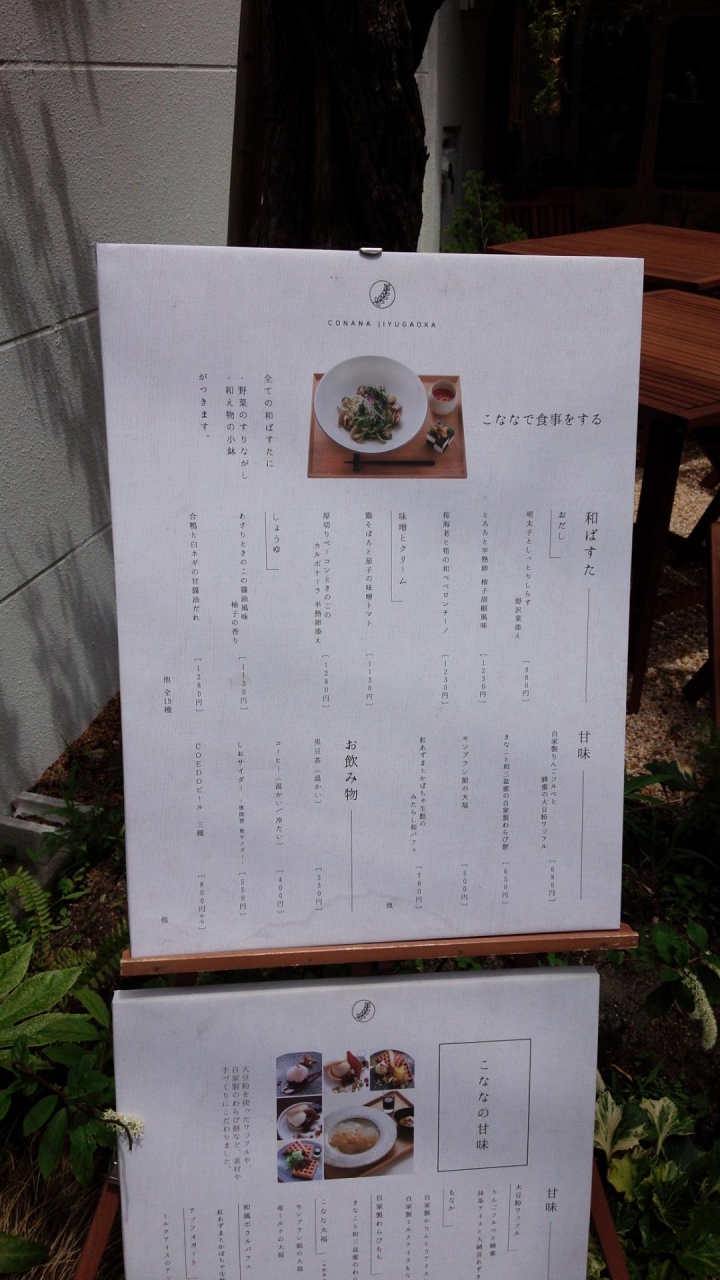 CONANA JIYUGAOKA
こななで食事をする
全ての和ぱすたに
・野菜のすりながし
・和え物の小鉢
がつきます。
和ぱすた
おだし
明太子としっとりしらす
野沢菜添え
[980円]
とろろと半熟卵 柚子胡椒風味
[1250円]
桜海老と筍の和ペペロンチーノ
[1230円]
味噌とクリーム
鶏そぼろと茄子の味噌トマト
[1130円]
厚切りベーコンときのこの
カルボナーラ 半熟卵添え
[1280円]
しょうゆ
あさりときのこの醤油風味
柚子の香り
[1130円]
合鴨と白ネギの甘醤油だれ
[1280円]
他 全19種
甘味
自家製りんごソルベと
蜂蜜の大豆粉ワッフル
[680円]
きなこと和三盆蜜の自家製わらび餅
[650円]
モンブラン餡の大福
[500円]
紅あずまとかぼちゃ生麩の
みたらし和パフェ
[780円]
他
お飲み物
黒豆茶(温かい)
[530円]
コーヒー(温かい/冷たい)
[460円]
しおサイダー
[550円]
COEDOビール 三種
[800円から]
他
こななの甘味
大豆粉を使ったワッフルや、
自家製のわらび餅など、素材や
手づくりにこだわりました。
甘味
大豆粉ワッフル
りんごソルベと蜂蜜
もなか
自家製わらびもち
こなな大福
モンブラン餡の大福
苺ミルクの大福
和風ポラルパフェ
アッフォガート